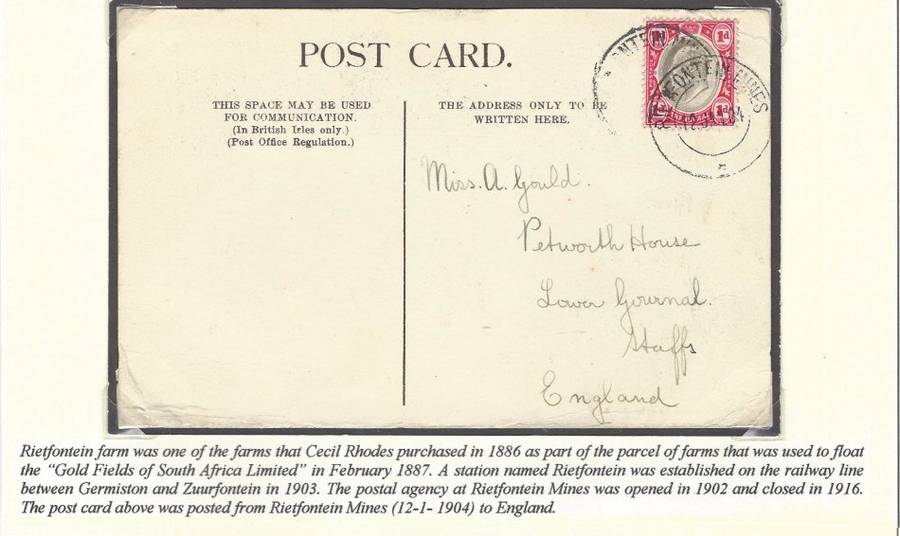 POST CARD.
THIS SPACE MAY BE USED
FOR COMMUNICATION.
(In British Isles only.)
(Post Office Regulation.)
THE ADDRESS ONLY TO BE
WRITTEN HERE.
1d
1d
FONTEIN MINES
Miss. A. Gould.
Petworth House
Lower Gournal.
Staffs
England
Rietfontein farm was one of the farms that Cecil Rhodes purchased in 1886 as part of the parcel of farms that was used to float
the “Gold Fields of South Africa Limited” in February 1887. A station named Rietfontein was established on the railway line
between Germiston and Zuurfontein in 1903. The postal agency at Rietfontein Mines was opened in 1902 and closed in 1916.
The post card above was posted from Rietfontein Mines (12-1- 1904) to England.